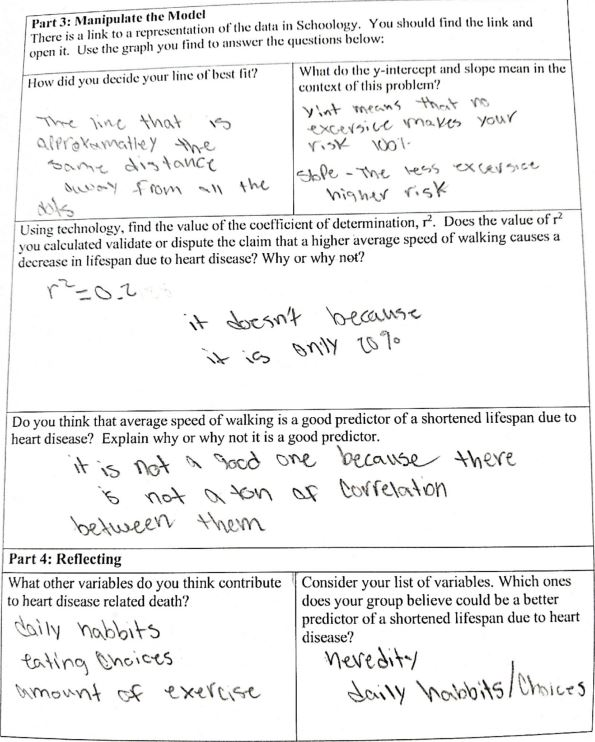 Part 3: Manipulate the Model
There is a link to a representation of the data in Schoology. You should find the link and
open it. Use the graph you find to answer the questions below:
How did you decide your line of best fit?
The line that is
approxamatley the
same distance
away from all the
dots
What do the y-intercept and slope mean in the
context of this problem?
Yint means that no
excersice makes your
risk 100%
Slope - The less excersice
higher risk
Using technology, find the value of the coefficient of determination, r². Does the value of r²
you calculated validate or dispute the claim that a higher average speed of walking causes a
decrease in lifespan due to heart disease? Why or why not?
r²=0.2
it doesn't because
it is only 20%
Do you think that average speed of walking is a good predictor of a shortened lifespan due to
heart disease? Explain why or why not it is a good predictor.
it is not a good one because there
is not a ton of correlation
between them
Part 4: Reflecting
What other variables do you think contribute
to heart disease related death?
daily habbits
eating choices
amount of exercise
Consider your list of variables. Which ones
does your group believe could be a better
predictor of a shortened lifespan due to heart
disease?
heredity
daily habbits/choices